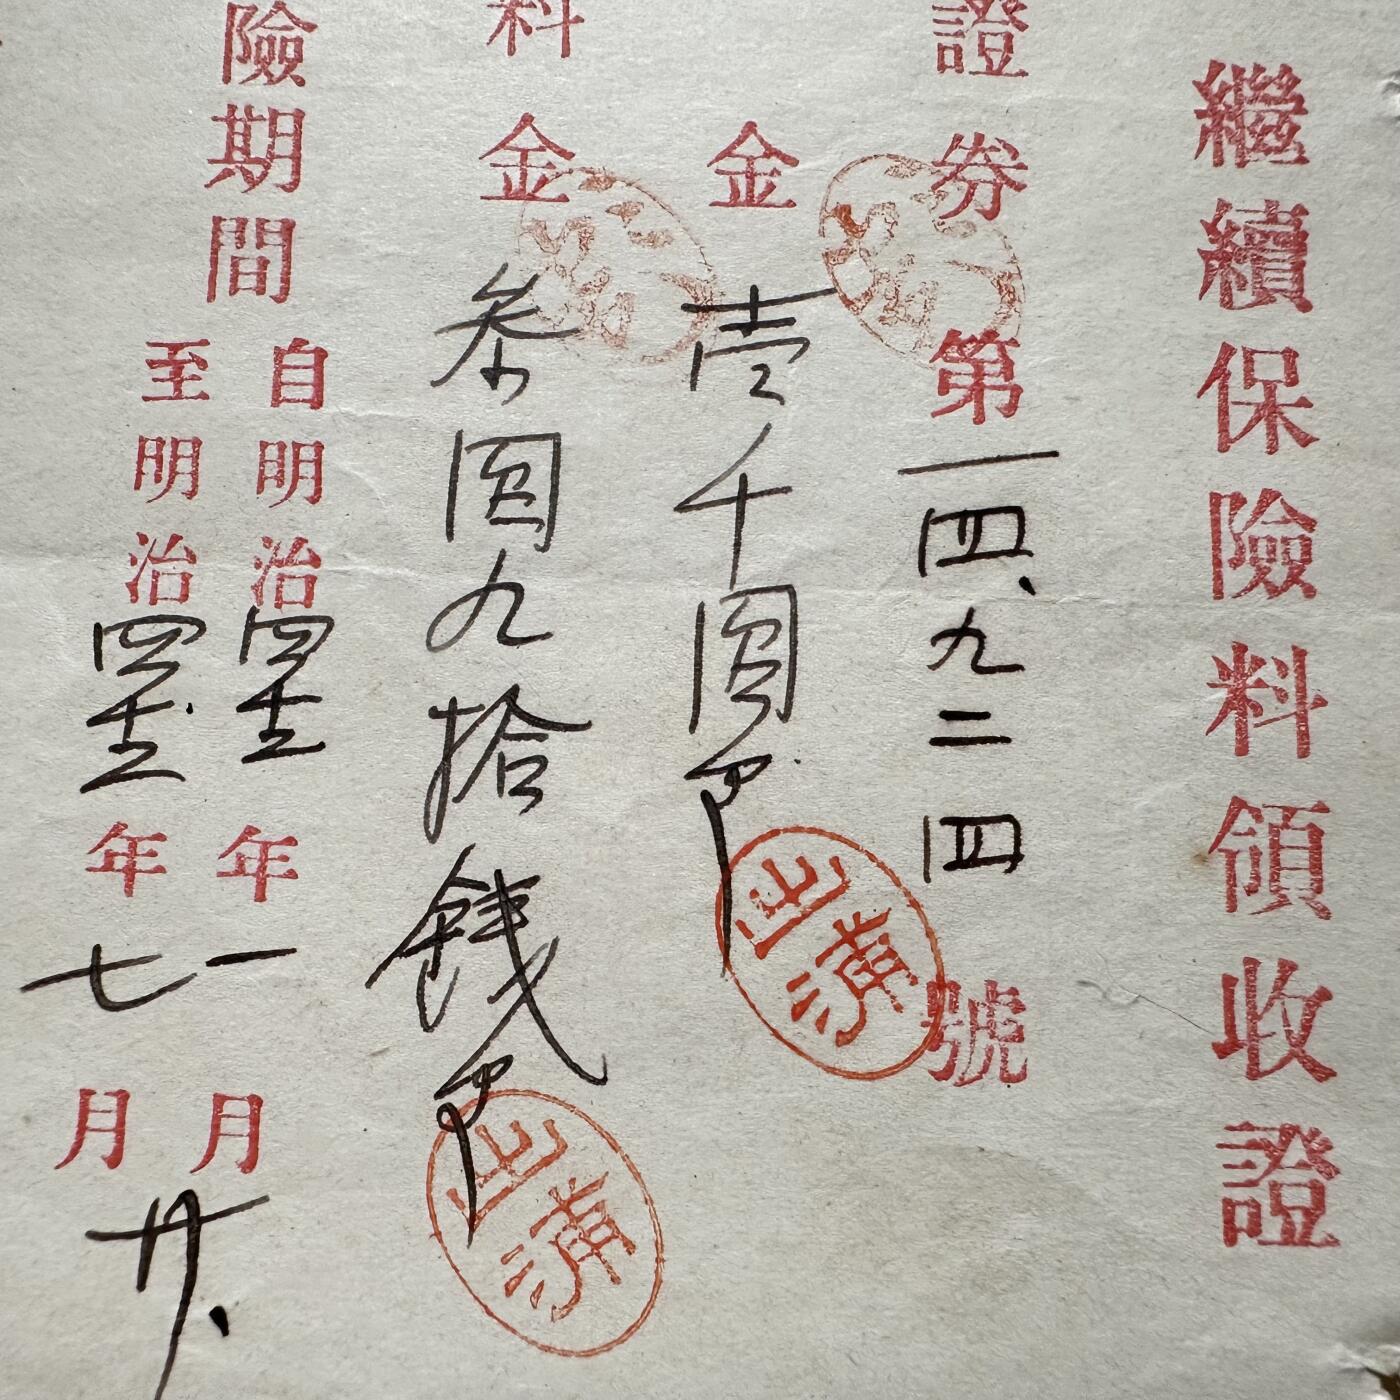 繼續保險料領收證
證券第一四、九二四號
金壹千圓也
料金参圓九拾錢也
險期間
自明治四十五年一月
至明治四十五年七月
廿